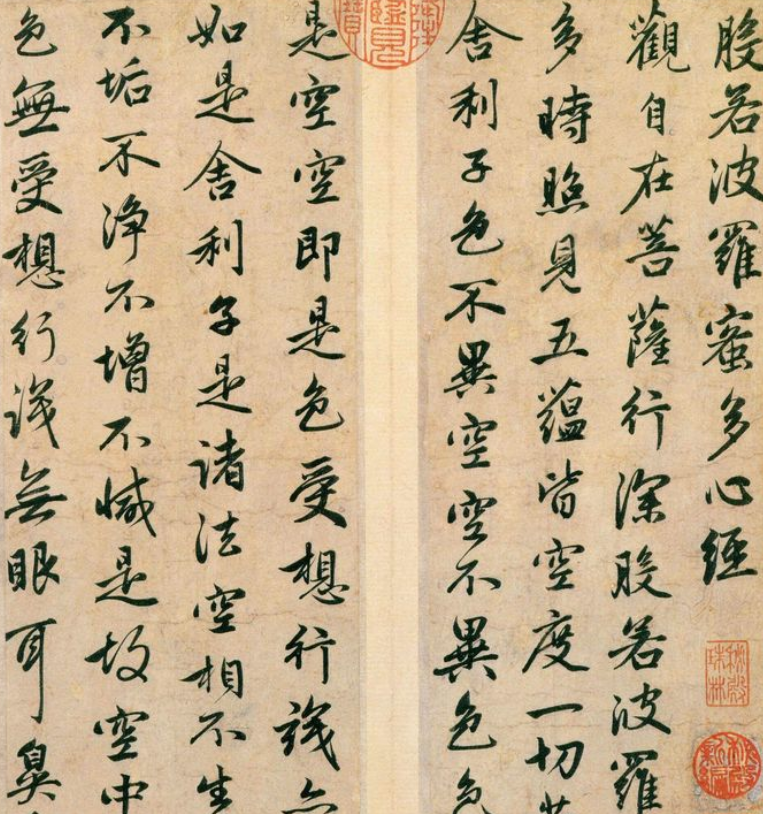 般若波羅蜜多心經
觀自在菩薩行深般若波羅
多時照見五蘊皆空度一切
舍利子色不異空空不異色色
是空空即是色受想行識亦
如是舍利子是諸法空相不生
不垢不淨不增不減是故空中
色無受想行識無眼耳鼻